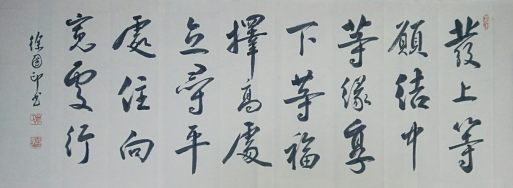 發上等
願結中
等緣享
下等福
擇高處
立尋平
處住向
寬處行
徐国印书